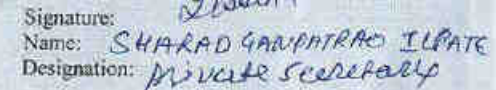 Signature:
Name: SHARAD GANPATRAO ILPATE
Designation: private Secretary